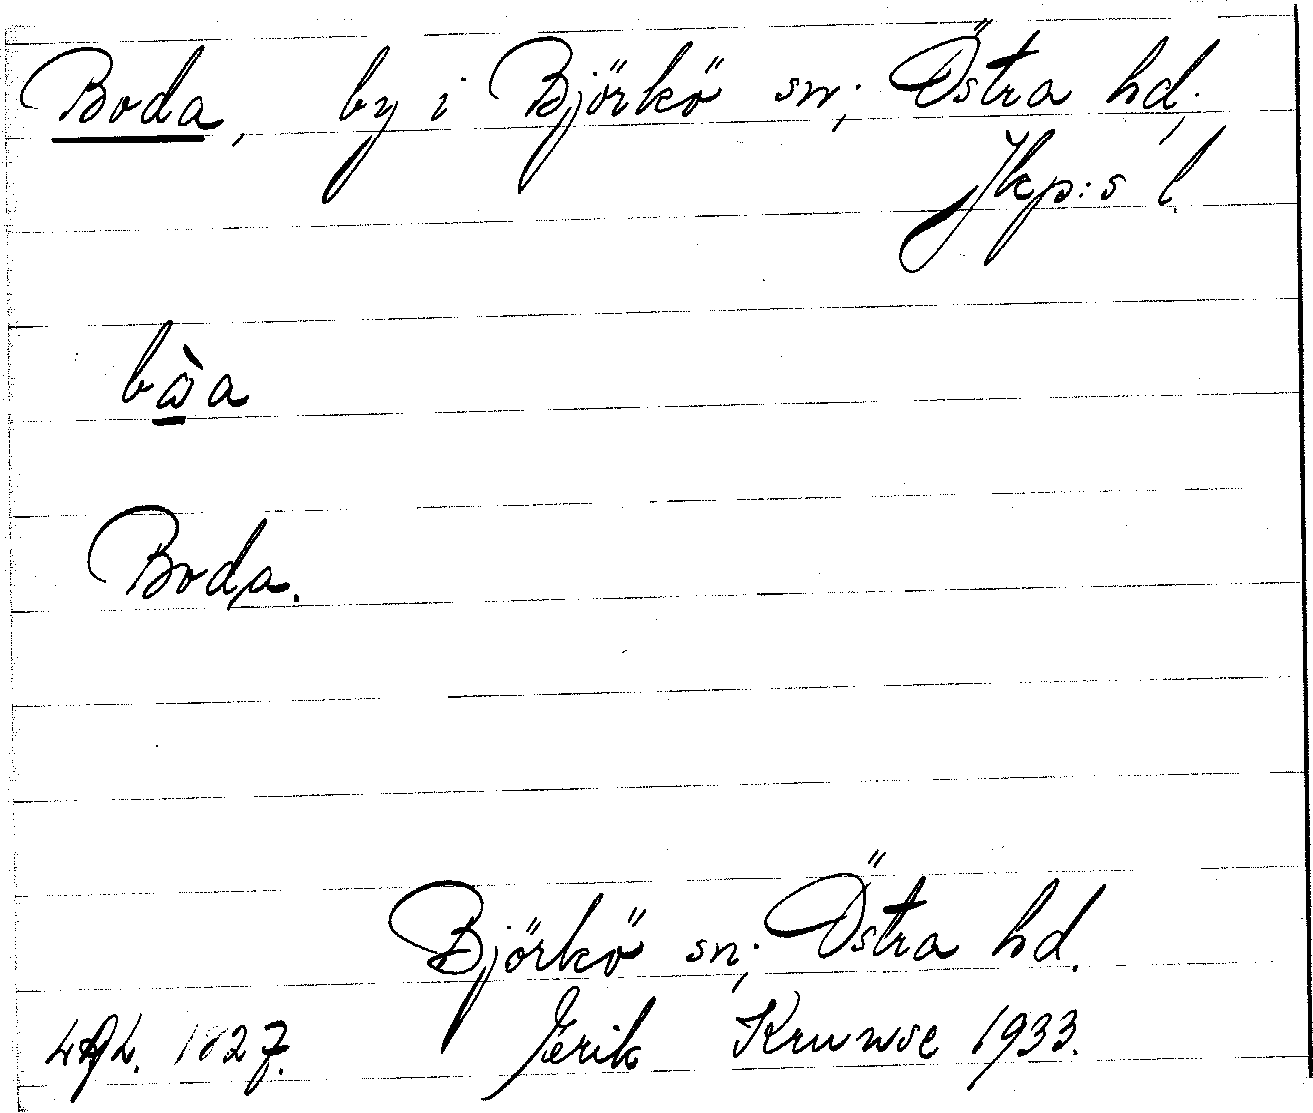 Boda, by i Björkö sn; Östra hd;
Jkp:s l.
bò̲a
Boda.
Björkö sn; Östra hd.
1827. Jerik Krunse 1933.